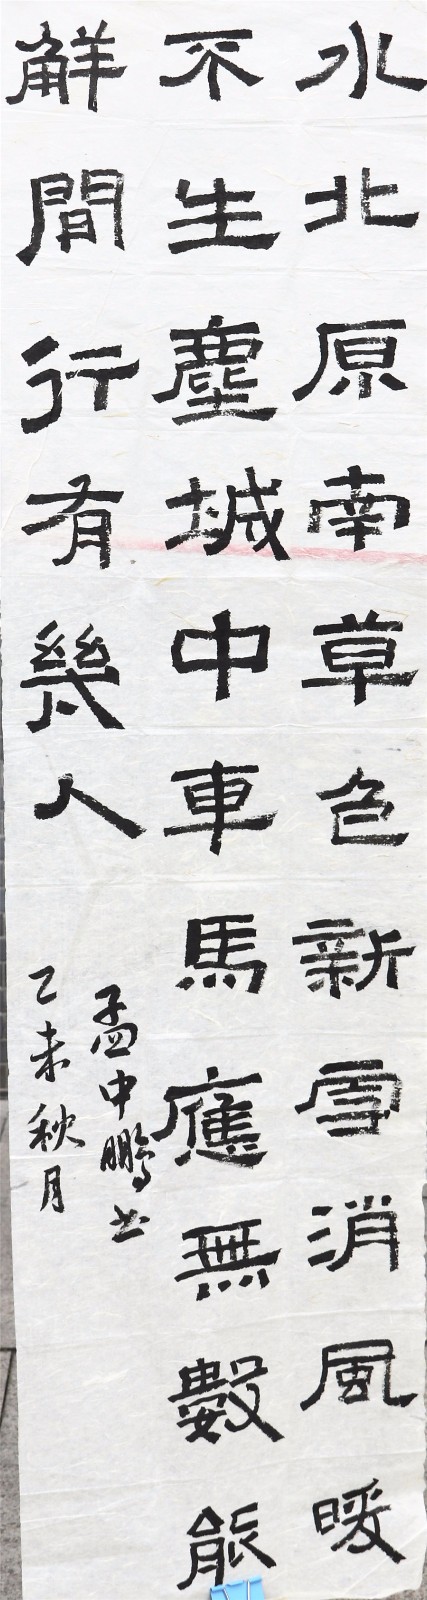 水北原南草色新雪消風暖
不生塵城中車馬應無數能
解間行有幾人
孟中鵬书
乙未秋月